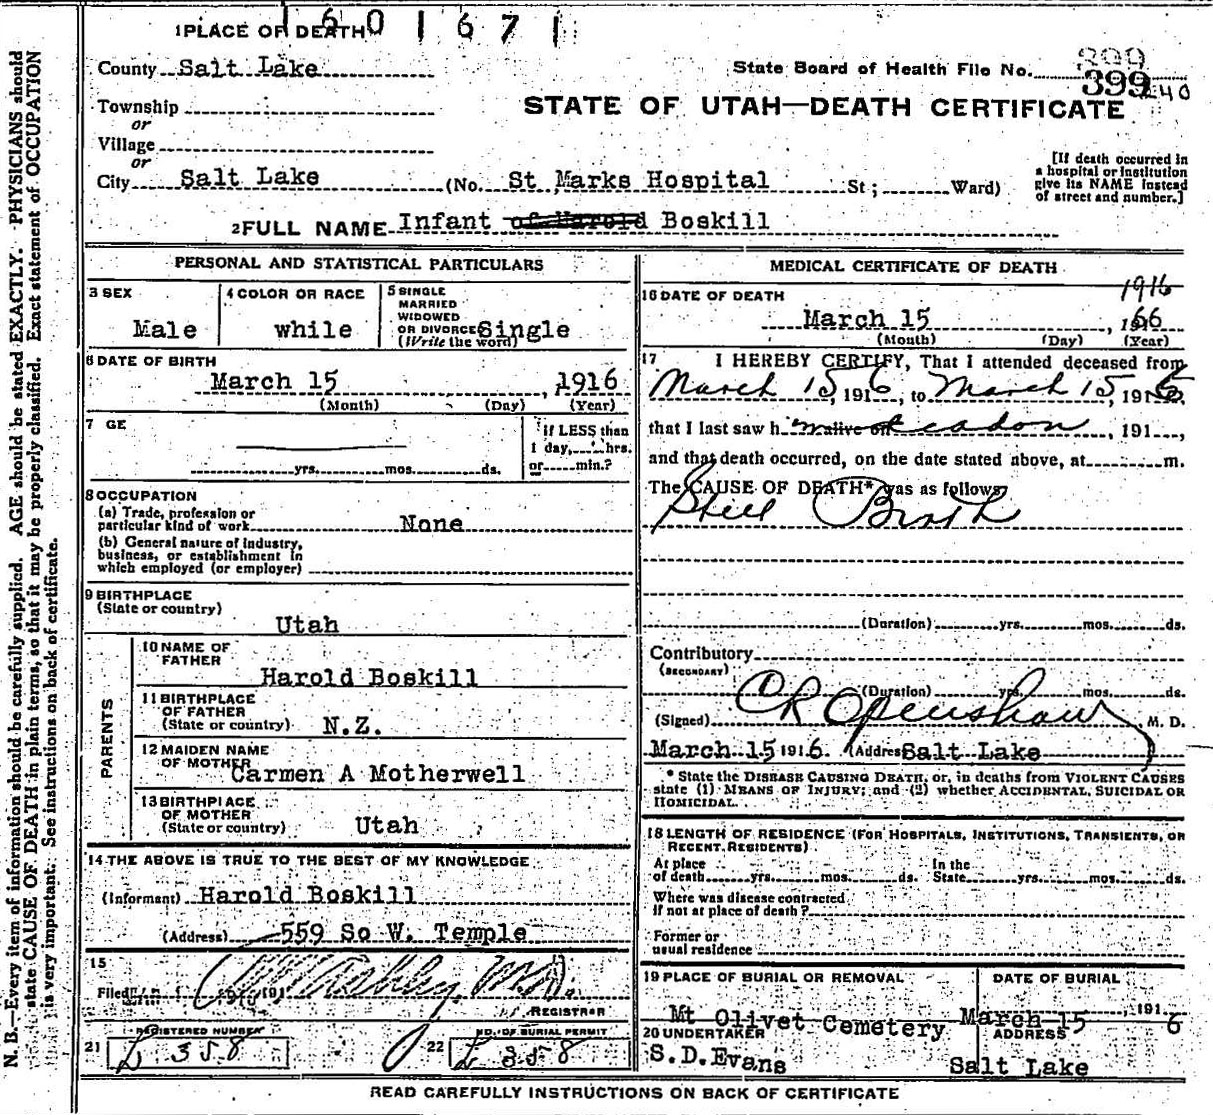 1601671
1 PLACE OF DEATH
County Salt Lake
State Board of Health File No. 399
399
Township
or
Village
or
STATE OF UTAH—DEATH CERTIFICATE
City Salt Lake (No. St Marks Hospital St; Ward)
[If death occurred in
a hospital or institution
give its NAME instead
of street and number.]
2 FULL NAME Infant of Harold Boskill
PERSONAL AND STATISTICAL PARTICULARS
3 SEX
Male
4 COLOR OR RACE
while
5 SINGLE
MARRIED
WIDOWED
OR DIVORCED Single
(Write the word)
6 DATE OF BIRTH
March 15, 1916
(Month) (Day) (Year)
7 GE
yrs. mos. ds.
if LESS than
1 day, hrs.
or min.?
8 OCCUPATION
(a) Trade, profession or
particular kind of work None
(b) General nature of industry,
business, or establishment in
which employed (or employer)
9 BIRTHPLACE
(State or country)
Utah
PARENTS
10 NAME OF
FATHER
Harold Boskill
11 BIRTHPLACE
OF FATHER
(State or country) N.Z.
12 MAIDEN NAME
OF MOTHER
Carmen A Motherwell
13 BIRTHPLACE
OF MOTHER
(State or country) Utah
14 THE ABOVE IS TRUE TO THE BEST OF MY KNOWLEDGE
(Informant) Harold Boskill
(Address) 559 So W. Temple
15
Filed 191
REGISTRAR
REGISTERED NUMBER
21 L 358
NO. OF BURIAL PERMIT
22 L 358
MEDICAL CERTIFICATE OF DEATH
16 DATE OF DEATH
1916
March 15, 1966
(Month) (Day) (Year)
17 I HEREBY CERTIFY, That I attended deceased from
March 15, 1916, to March 15, 1916,
that I last saw h alive on, 191,
and that death occurred, on the date stated above, at m.
The CAUSE OF DEATH* was as follows
Still Birth
(Duration) yrs. mos. ds.
Contributory
(SECONDARY)
(Duration) yrs. mos. ds.
(Signed) CR Openshaw, M. D.
March 15 1916. (Address Salt Lake
* State the DISEASE CAUSING DEATH, or, in deaths from VIOLENT CAUSES
state (1) MEANS OF INJURY; and (2) whether ACCIDENTAL, SUICIDAL OR
HOMICIDAL.
18 LENGTH OF RESIDENCE (FOR HOSPITALS, INSTITUTIONS, TRANSIENTS, OR
RECENT RESIDENTS)
At place
of death yrs. mos. ds.
In the
State yrs. mos. ds.
Where was disease contracted
if not at place of death?
Former or
usual residence
19 PLACE OF BURIAL OR REMOVAL
Mt Olivet Cemetery
DATE OF BURIAL
March 15, 1916
20 UNDERTAKER
S.D.Evans
ADDRESS
Salt Lake
READ CAREFULLY INSTRUCTIONS ON BACK OF CERTIFICATE
N. B.—Every item of information should be carefully supplied. AGE should be stated EXACTLY. PHYSICIANS should
state CAUSE OF DEATH in plain terms, so that it may be properly classified. Exact statement of OCCUPATION
is very important. See instructions on back of certificate.